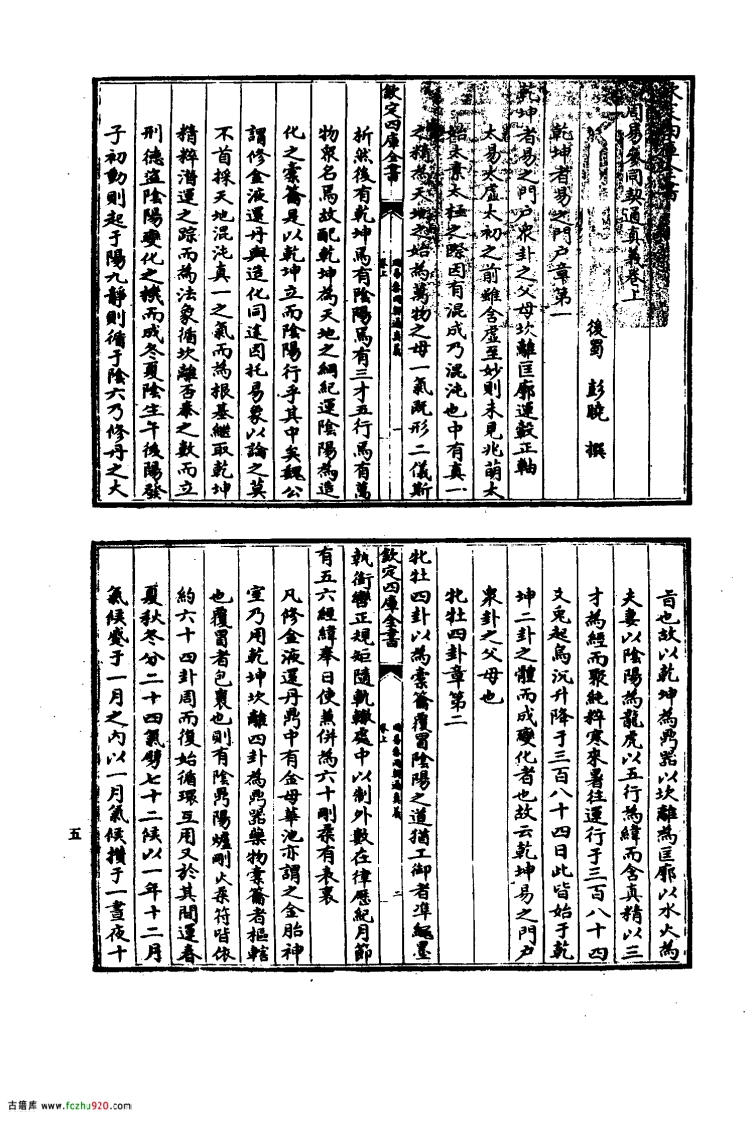 欽定四庫全書
周易參同契通真義卷上
後蜀 彭曉 撰
乾坤者易之門戶章第一
乾坤者易之門戶衆卦之父母坎離匡廓運轂正軸
太易太虛太初之前雖含虛至妙則未見兆萌太
始太素太極之際因有混成乃混沌也中有真一
之精為天地之始為萬物之母一氣既形二儀斯
欽定四庫全書
周易參同契通真義
卷上
一
析然後有乾坤焉有陰陽焉有三才五行焉有萬
物衆名焉故配乾坤為天地之綱紀運陰陽為造
化之槖籥是以乾坤立而陰陽行乎其中矣魏公
謂修金液還丹與造化同途因托易象以論之莫
不首採天地混沌真一之氣而為根基繼取乾坤
精粹潛運之踪而為法象循坎離否泰之數而立
刑德盜陰陽變化之機而成冬夏陰生午後陽發
子初動則起于陽九靜則循于陰六乃修丹之大
旨也故以乾坤為鼎器以坎離為匡廓以水火為
夫妻以陰陽為龍虎以五行為緯而含真精以三
才為經而聚純粹寒來暑往運行于三百八十四
爻兎起烏沉升降于三百八十四日此皆始于乾
坤二卦之體而成變化者也故云乾坤易之門戶
衆卦之父母也
牝牡四卦章第二
牝牡四卦以為槖籥覆冒陰陽之道猶工御者凖繩墨
欽定四庫全書
周易參同契通真義
卷上
二
執銜轡正規矩隨軌轍處中以制外數在律歷紀月節
有五六經緯奉日使兼併為六十剛柔有表裏
凡修金液還丹鼎中有金母華池亦謂之金胎神
室乃用乾坤坎離四卦為鼎器藥物槖籥者樞轄
也覆冒者包裹也則有陰鼎陽爐剛火柔符皆依
約六十四卦周而復始循環互用又於其間運春
夏秋冬分二十四氣擘七十二候以一年十二月
氣候蹙于一月之內以一月氣候攢于一晝夜十
五
古籍库 www.fczhu920.com